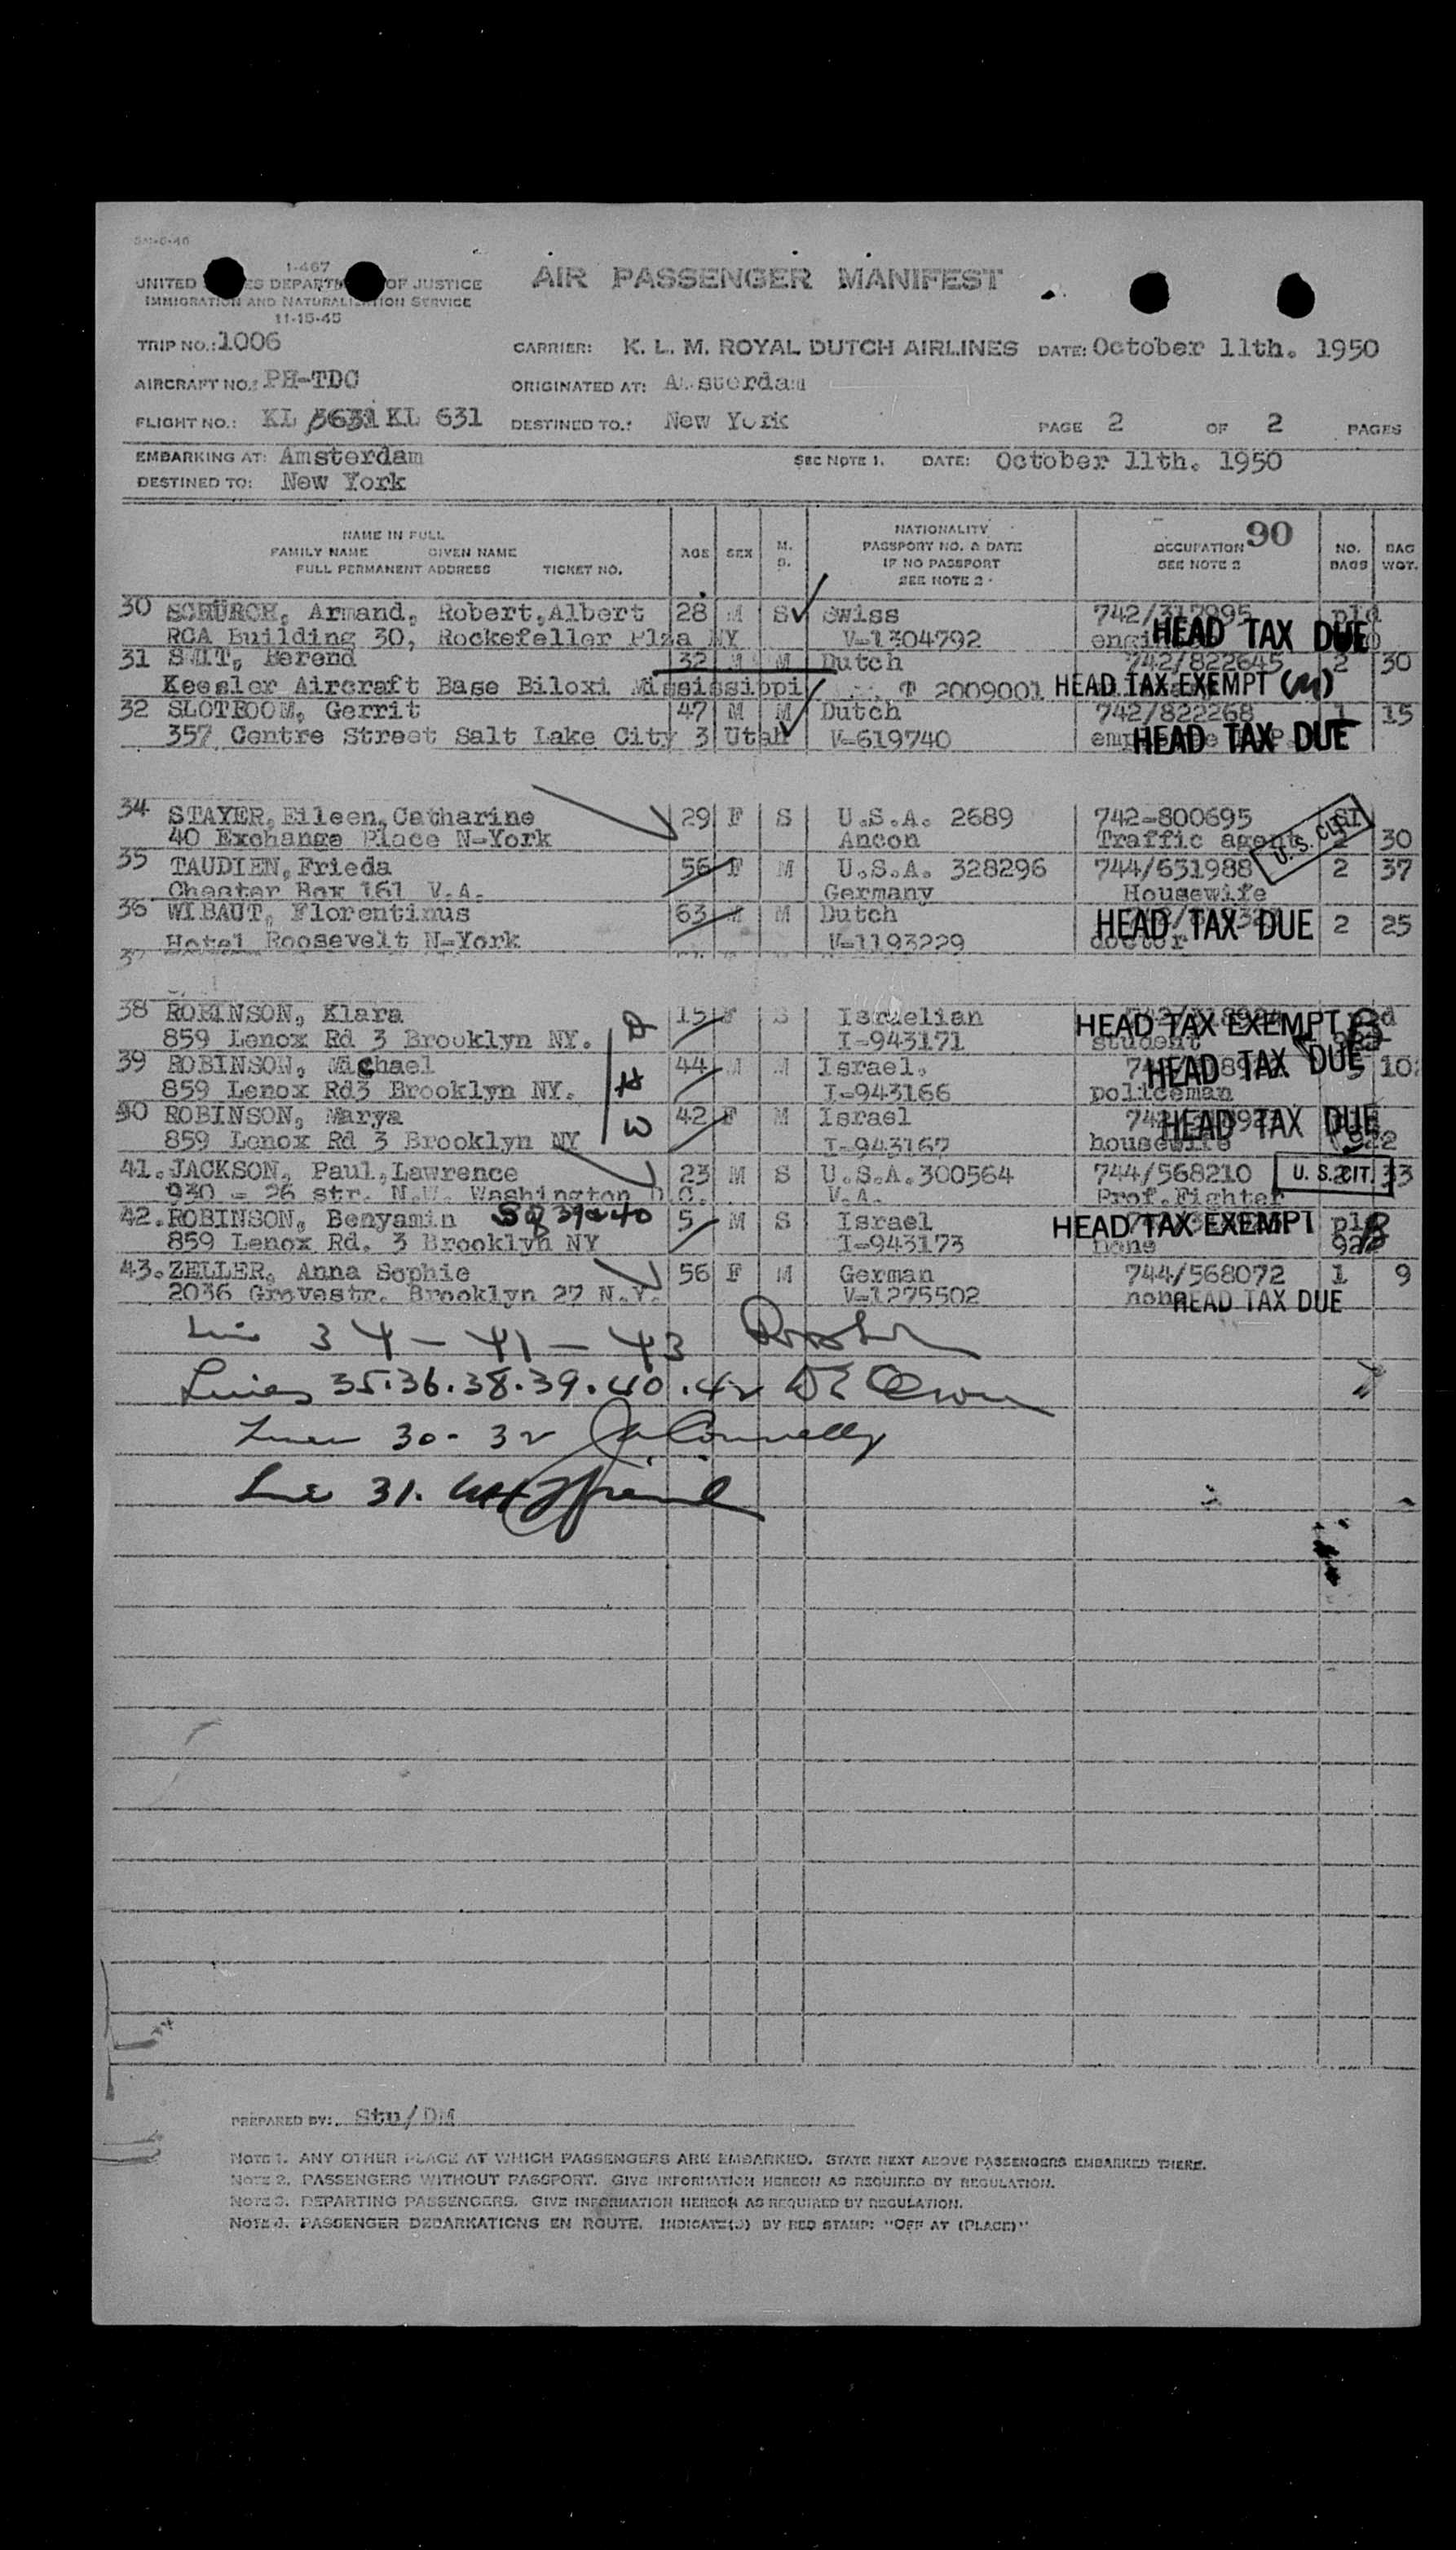 SM-6-46
I-467
UNITED ES DEPARTM OF JUSTICE
IMMIGRATION AND NATURALIZATION SERVICE
11-15-45
AIR PASSENGER MANIFEST
TRIP NO.: 1006 CARRIER: K. L. M. ROYAL DUTCH AIRLINES DATE: October 11th. 1950
AIRCRAFT NO.: PH-TDC ORIGINATED AT: Amsterdam
FLIGHT NO.: KL 3631 KL 631 DESTINED TO.: New York PAGE 2 OF 2 PAGES
EMBARKING AT: Amsterdam SEE NOTE 1. DATE: October 11th. 1950
DESTINED TO: New York
NAME IN FULL
FAMILY NAME GIVEN NAME
FULL PERMANENT ADDRESS TICKET NO.
AGE SEX M. S.
NATIONALITY
PASSPORT NO. & DATE
IF NO PASSPORT
SEE NOTE 2
OCCUPATION 90
SEE NOTE 2
NO. BAGS
BAG WGT.
30 SCHÜRCH, Armand, Robert, Albert 28 M S Swiss 742/317995 pld
RCA Building 30, Rockefeller Plza NY V-1304792 HEAD TAX DUE
31 SMIT, Berend 32 M M Dutch 742/822645 2 30
Keesler Aircraft Base Biloxi Mississippi T 2009001 HEAD TAX EXEMPT (M)
32 SLOTBOOM, Gerrit 47 M M Dutch 742/822268 1 15
357 Centre Street Salt Lake City 3 Utah V-619740 HEAD TAX DUE
34 STAYER, Eileen, Catharine 29 F S U.S.A. 2689 742-800695
40 Exchange Place N-York Ancon Traffic agent U. S. CIT. 30
35 TAUDIEN, Frieda 56 F M U.S.A. 328296 744/651988 2 37
Chester Box 161 V.A. Germany Housewife
36 WIBAUT, Florentinus 63 M M Dutch HEAD TAX DUE 2 25
Hotel Roosevelt N-York V-1193229 doctor
37
38 ROBINSON, Klara 15 F S Israelian HEAD TAX EXEMPT
859 Lenox Rd 3 Brooklyn NY. D I-943171 student
39 ROBINSON, Michael 44 M M Israel. HEAD TAX DUE
859 Lenox Rd3 Brooklyn NY. H I-943166 policeman
40 ROBINSON, Marya 42 F M Israel HEAD TAX DUE
859 Lenox Rd 3 Brooklyn NY W I-943167 housewife
41. JACKSON, Paul, Lawrence 23 M S U.S.A. 300564 744/568210 U. S. CIT. 33
930 - 26 str. N.W. Washington D.C. V.A. Prof.Fighter
42. ROBINSON, Benyamin S of 39 & 40 5 M S Israel HEAD TAX EXEMPT
859 Lenox Rd. 3 Brooklyn NY I-943173 none
43. ZELLER, Anna Sophie 56 F M German 744/568072 1 9
2036 Grovestr. Brooklyn 27 N.Y. V-1275502 none HEAD TAX DUE
34 - 41 - 43
Lines 35.36.38.39.40.42
Lines 30 - 32 Connelly
Line 31.
PREPARED BY: Stu/DM
NOTE 1. ANY OTHER PLACE AT WHICH PASSENGERS ARE EMBARKED. STATE NEXT ABOVE PASSENGERS EMBARKED THERE.
NOTE 2. PASSENGERS WITHOUT PASSPORT. GIVE INFORMATION HEREON AS REQUIRED BY REGULATION.
NOTE 3. DEPARTING PASSENGERS. GIVE INFORMATION HEREON AS REQUIRED BY REGULATION.
NOTE 4. PASSENGER DEBARKATIONS EN ROUTE. INDICATE(D) BY RED STAMP: "OFF AT (PLACE)"